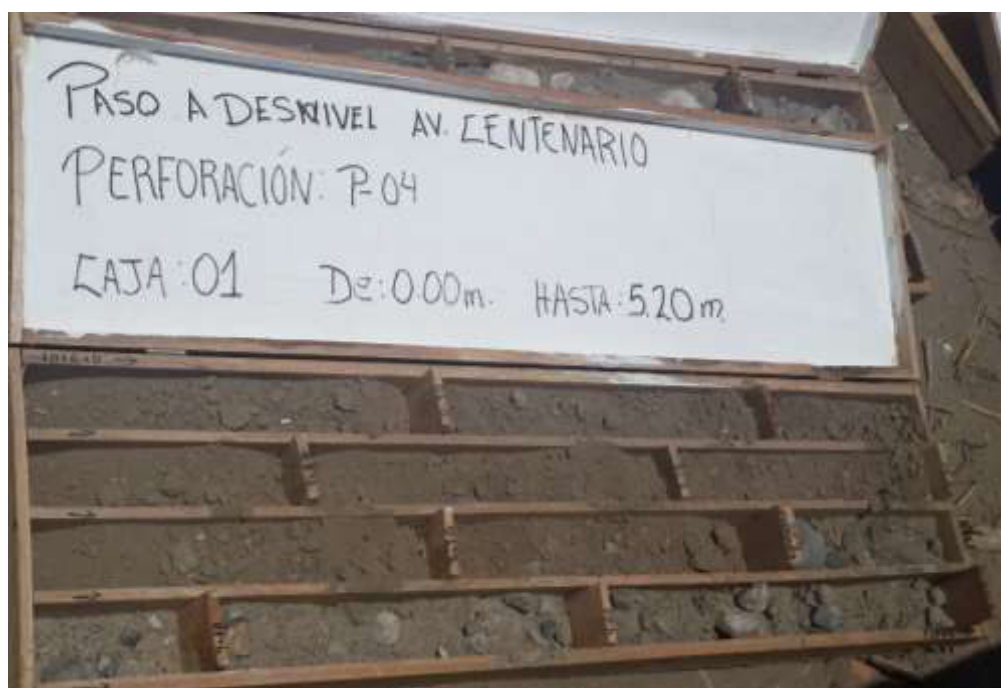 PASO A DESNIVEL AV. CENTENARIO
PERFORACIÓN: P-04
CAJA: 01 De: 0.00m. HASTA: 5.20m.